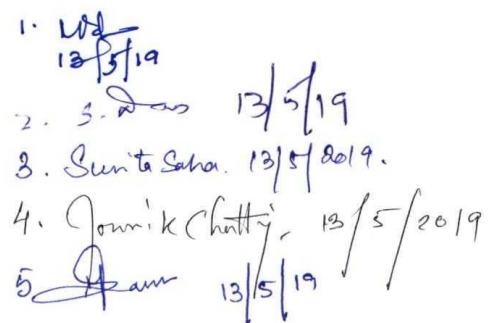 1.
13/5/19
2. S. Das 13/5/19
3. Sunita Saha. 13/5/2019.
4. 13/5/2019
5 13/5/19